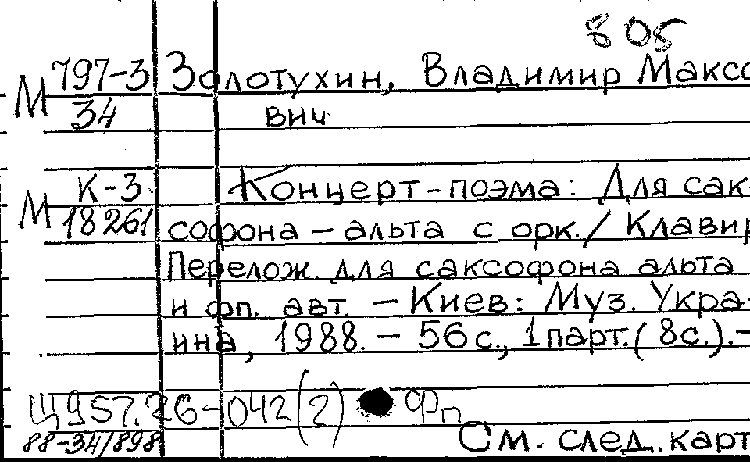 805
М 797-3 Золотухин, Владимир Максо
34 вич
М К-3 Концерт-поэма: Для сак
18261 софона – альта с орк./ Клавир
Перелож. для саксофона альта
и фп. авт. – Киев: Муз. Укра-
ина, 1988. – 56 с., 1 парт. (8с.).–
Щ957.26-042(2) Фп
88-34/898 См. след. карт